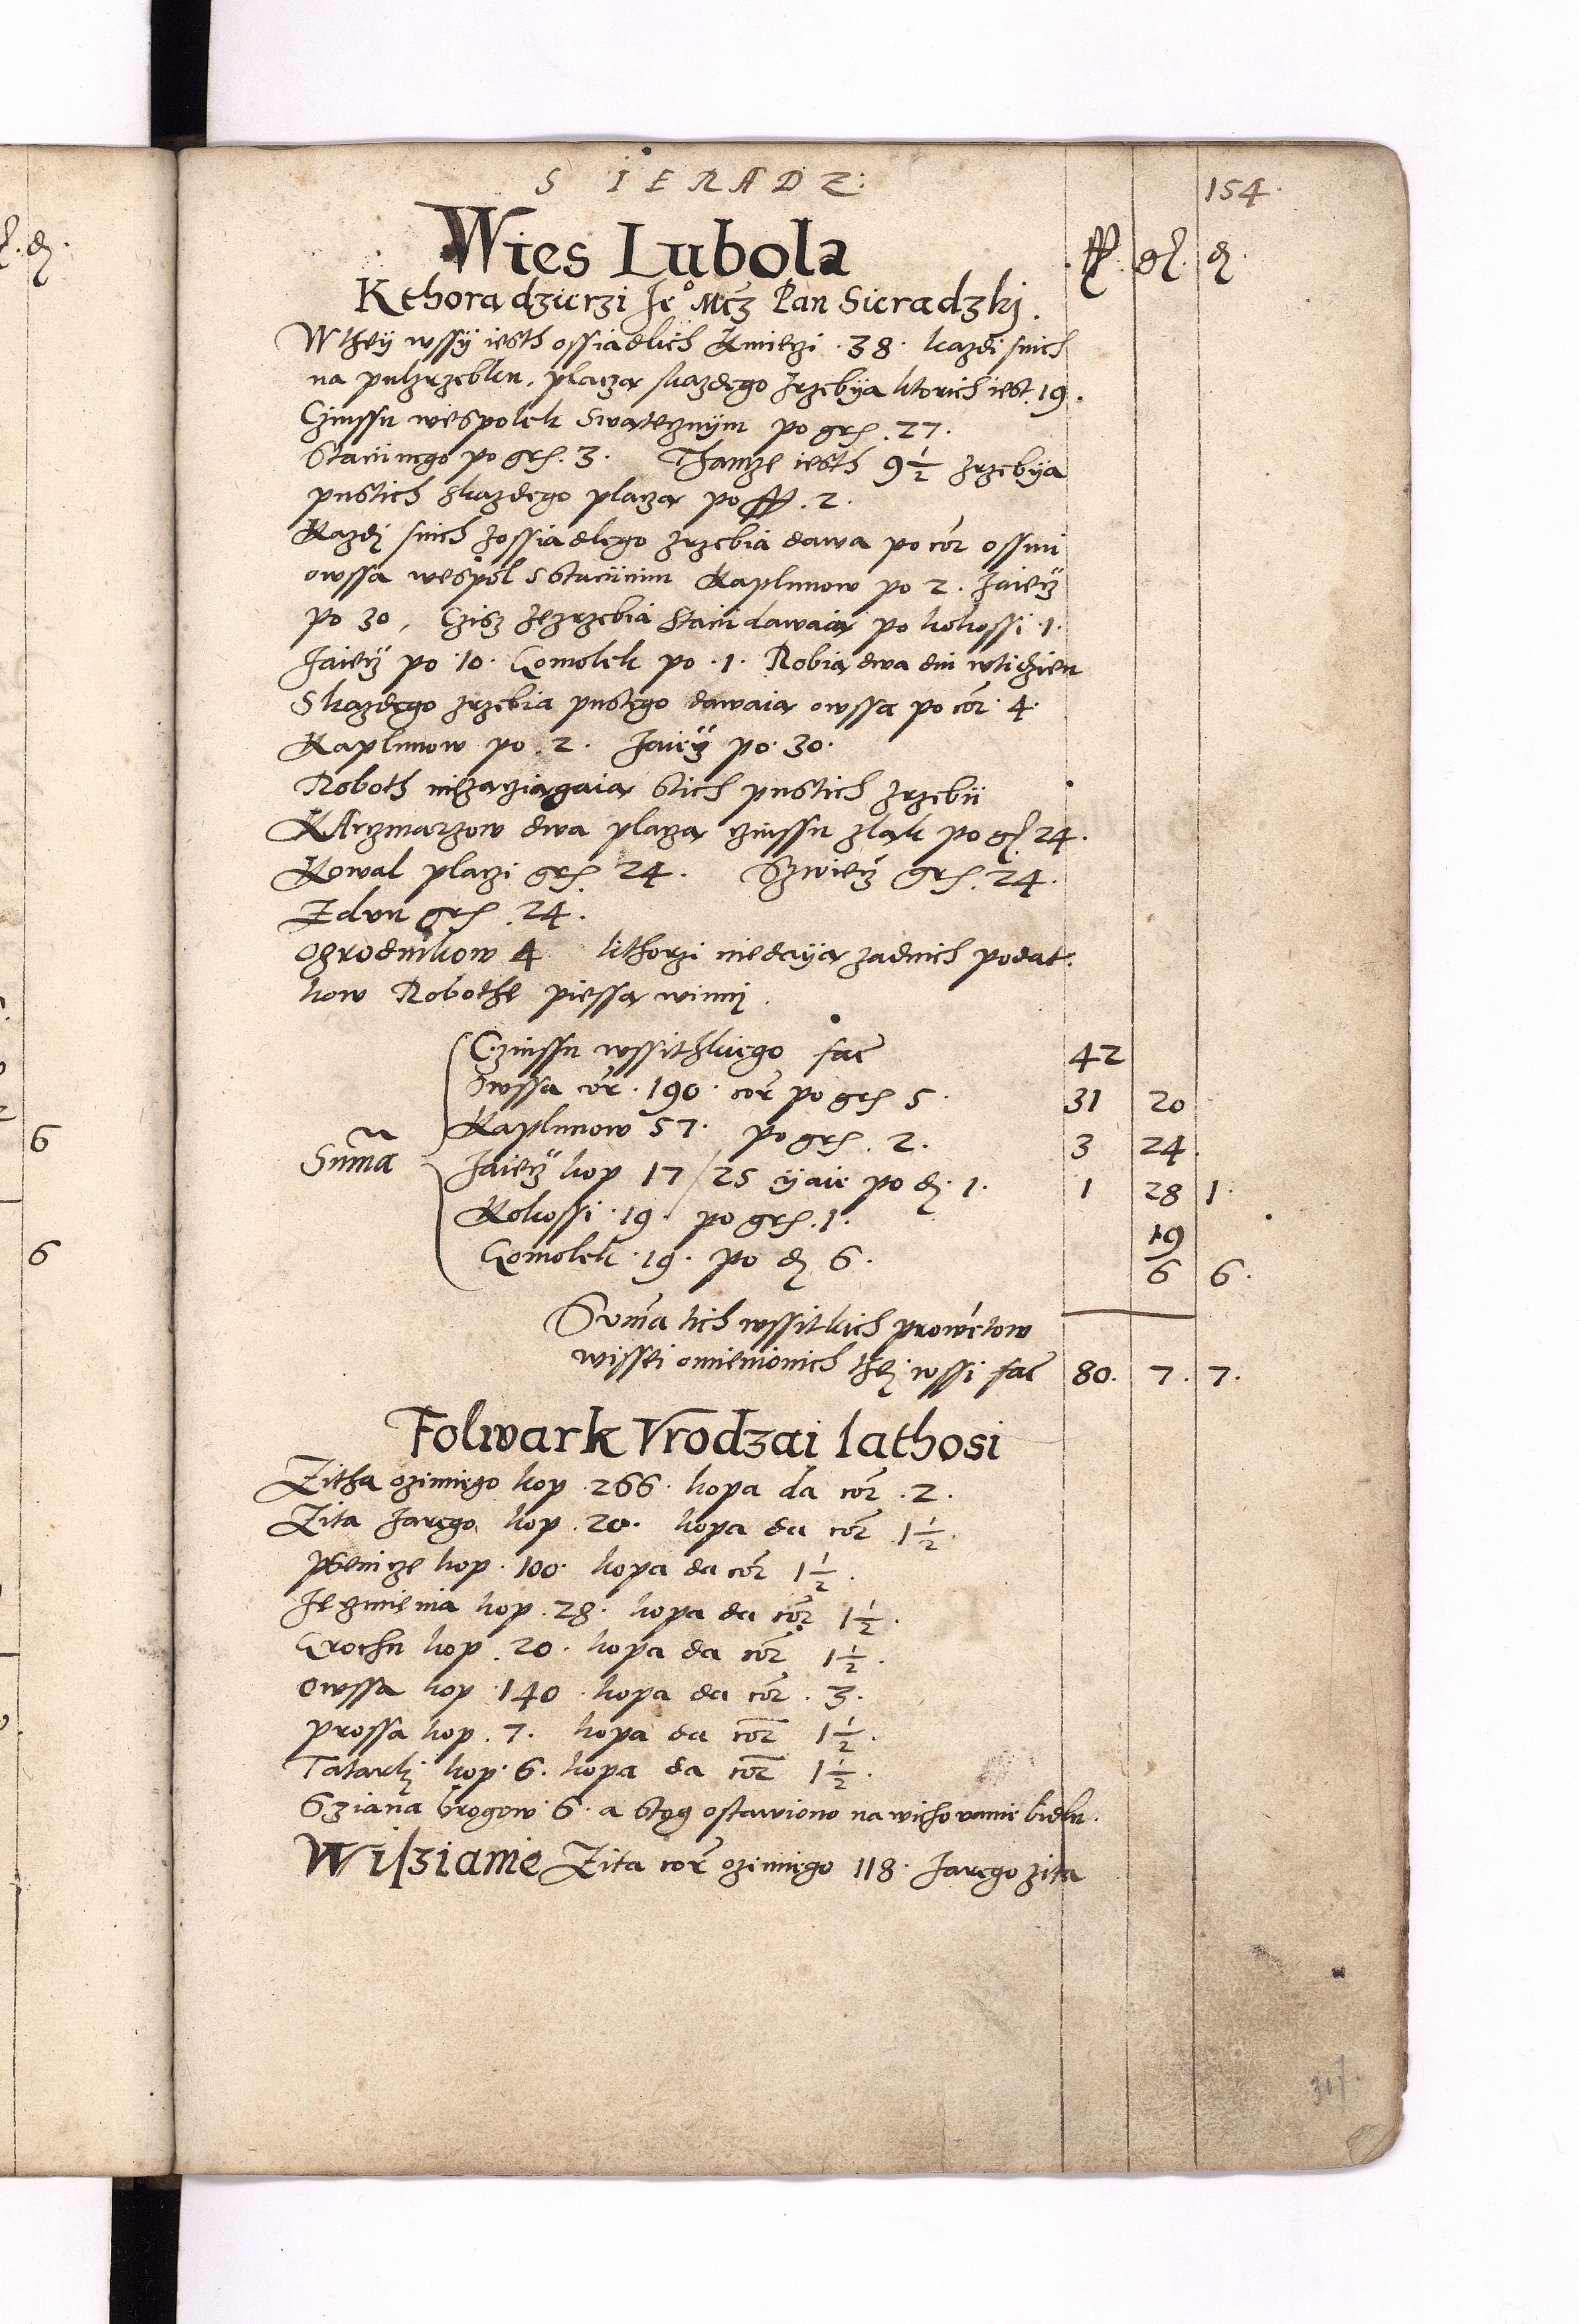 SIERADZ:
154.
Wies Lubola
ff. gl. d.
Kthora dzierzi Je° Mcz Pan Sieradzkj.
W they wssÿ iesth ossiadlich Kmieczi . 38 . kazdi snich
na pulzrzebku, placza skazdego zrzebÿa ktorich iest . 19 .
Czinssu wespolek Swatecznÿm po grs . 27 .
Staciinego po grs . 3 . Thamze iesth 9 1/2 zrzebÿa
pustich skazdego placza po ff . 2 .
Kazdj snich zossiadlego zrzebia dawa po cor ossmi
owssa wespol sstaciinim Kaplunow po 2 . Jaiecz
po 30 , Czisz zezrzebia stacii dawaia po kokossi . 1 .
Jaiecz po . 10 . Gomolek po . 1 . Robia dwa dni wtidzien
Skazdego zrzebia pustego dawaia owssa po cor . 4 .
Kaplunow po . 2 . Jaiecz po . 30 .
Roboth niezacziagaia stich pustich zrzebii
KArczmarzow dwa placza czinssu zlak po gl 24 .
Kowal placzi grs 24 . Szwiecz grs . 24 .
Zdun grs . 24 .
Ogrodnikow 4 kthorzi niedaÿa zadnich podat:
kow Robothe piessa winnj .
Czinssu wssitkiego fac 42
Owssa cor . 190 . cor po grs 5 . 31 20
Kaplunow 57 . po grs . 2 . 3 24 .
Suma
Jaiecz kop 17 / 25 ÿaie po d . 1 . 1 28 1 .
Kokossi . 19 . po grs . 1 . 19
Gomolek . 19 . po d 6 . 6 6 .
Suma tich wssitkich prowentow
wissei omienionich thej wssi fac 80 . 7 . 7 .
Folwark Vrodzai lathosi
Zitha ozimiego kop . 266 . kopa da cor . 2 .
Zita Jarego kop . 20 . kopa da cor 1 1/2 .
psenicze kop . 100 . kopa da cor 1 1/2 .
Jeczmienia kop . 28 . kopa da cor 1 1/2 .
Grochu kop . 20 . kopa da cor 1 1/2 .
Owssa kop . 140 . kopa da cor . 3 .
prossa kop . 7 . kopa da cor 1 1/2 .
Tatarkj kop . 6 . kopa da cor 1 1/2 .
Sziana brogow 6 . a stog ostawiono na wichowanie bidla .
Wiszianie Zita cor ozimiego 118 . Jarego zita
6
6